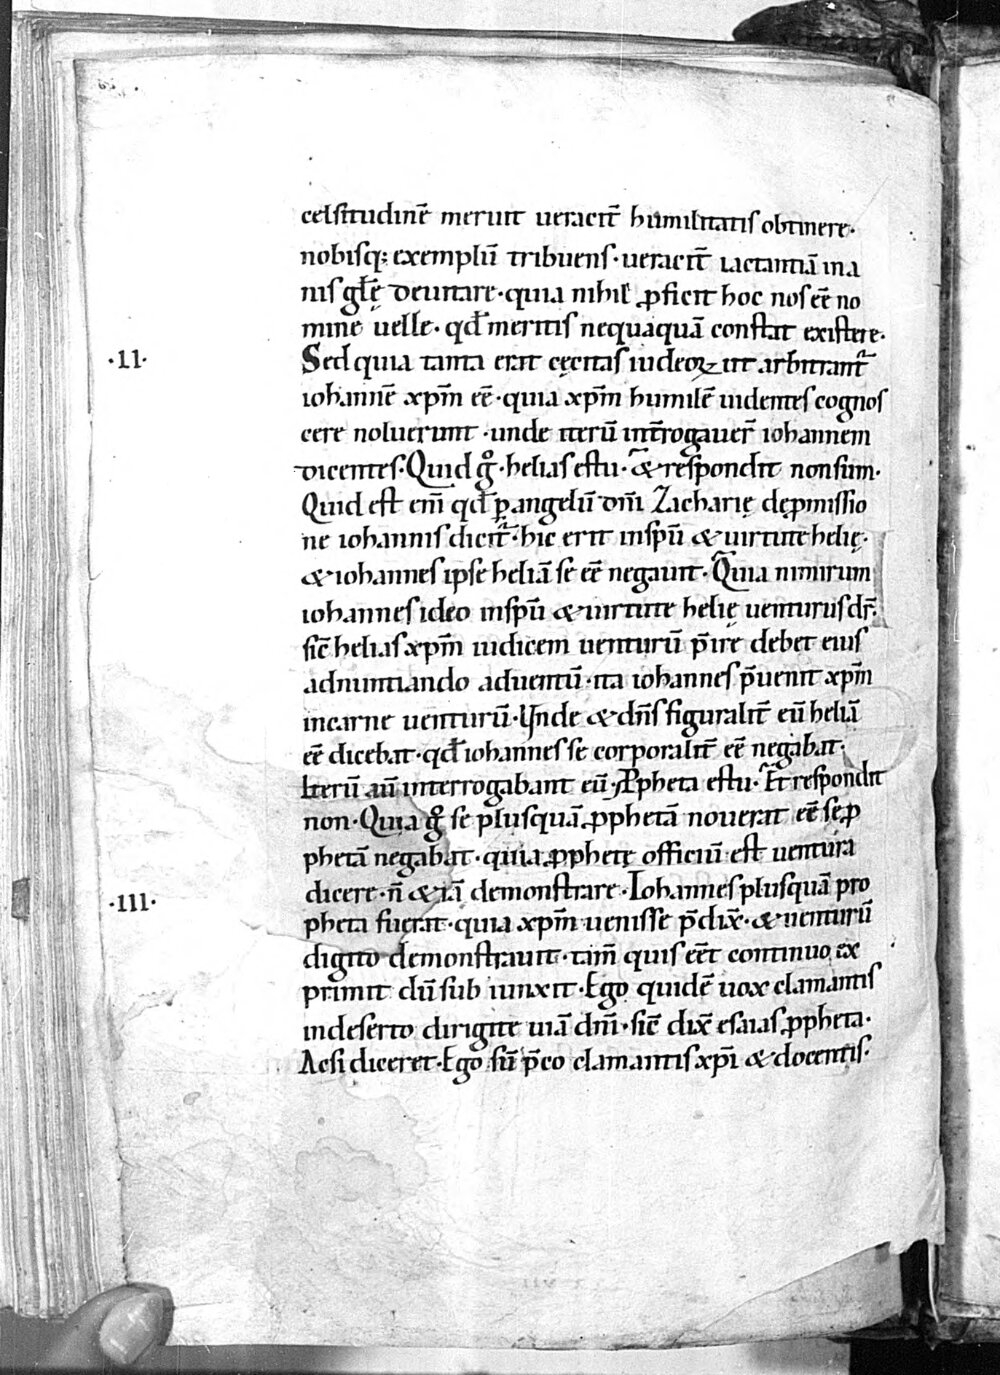 celsitudinē meruit ueracit̄ humilitatis obtinere·
nobisq; exemplū tribuens· ueracit̄ iactantiā ina
nis gl̄ę deuitare· quia nihil ꝓficit hoc nos eē no
mine uelle· qd̄ meritis nequaquā constat existere·
·II· Sed quia tanta erat cęcitas iudeoꝝ ut arbitrant᷑
iohannē xp̄m eē· quia xp̄m humilē uidentes cognos
cere noluerunt· unde iterū int̄rogauer̄ iohannem
dicentes· Quid gͦ· helias es tu· & respondit non sum·
Quid est eni̅ qd̄ ꝑ angelū dn̄i Zacharię de ꝓmissio
ne iohannis dicit᷑· hic erit in sp̄u & uirtute helię·
& iohannes ipse heliā se eē negauit· Quia nimirum
iohannes ideo in sp̄u & uirtute helię uenturus dr̄·
sic̄ helias xp̄m iudicem uenturū p̄ire debet eius
adnuntiando aduentū· ita iohannes p̄uenit xp̄m
in carne uenturū· Unde & dn̄s figuralit̄ eū heliā
eē dicebat· qd̄ iohannes se corporalit̄ eē negabat·
Iterū aū interrogabant eū· Ꝓpheta es tu· Et respondit
non· Quia gͦ se plusquā ꝓphetā nouerat eē se ꝓ
phetā negabat· quia ꝓphetę officiū est uentura
dicere· n̄ & iā demonstrare· Iohannes plusquā pro
·III· pheta fuerat· quia xp̄m uenisse p̄dix̄· & uenturū
digito demonstrauit· tam̄ quis eēt continuo ex
primit dū sub iunxit· Ego quidē uox clamantis
in deserto dirigite uiā dn̄i· sic̄ dix̄ esaias ꝓpheta·
Ac si diceret· Ego sū p̄co clamantis xp̄i & docentis·